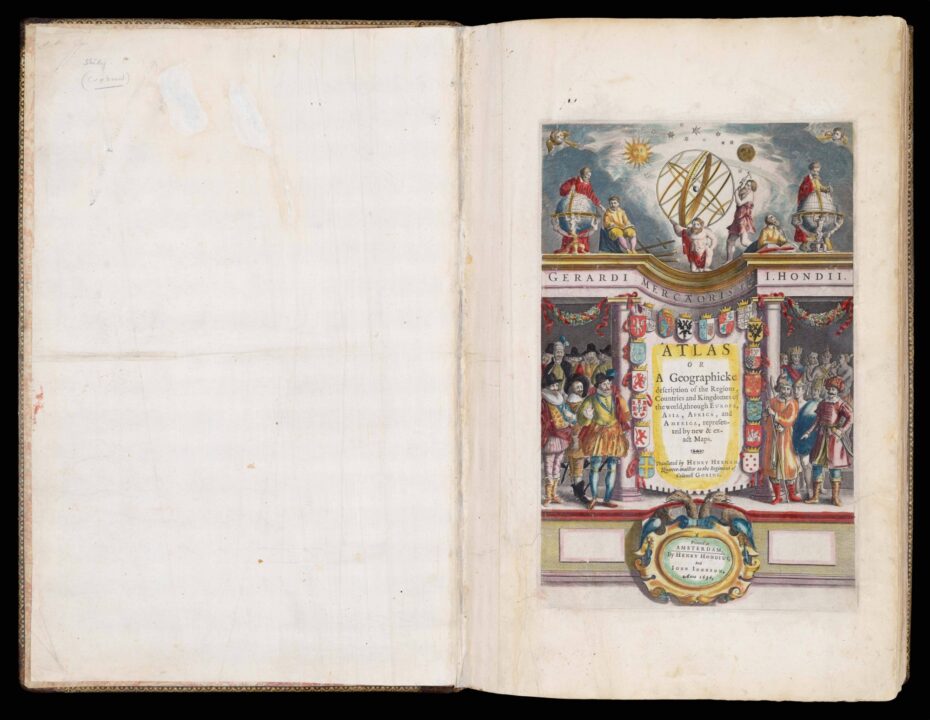 GERARDI MERCAORIS ET I. HONDII.
ATLAS
OR
A Geographicke
description of the Regions,
Countries and Kingdomes of
the world, through EUROPE,
ASIA, AFRICA, and
AMERICA, represen-
ted by new & ex-
act Maps.
Translated by HENRY HEXHAM,
Quarter-maister to the Regiment of
Colonell GORING.
Printed at
AMSTERDAM,
By HENRY HONDIUS,
And
JOHN JOHNSON,
Anno 1636.